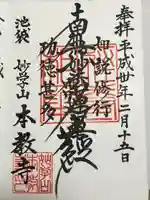 奉拝 平成廿年二月十五日
如説修行
南無妙法蓮華経
功徳甚多
池袋 妙学山 本教寺